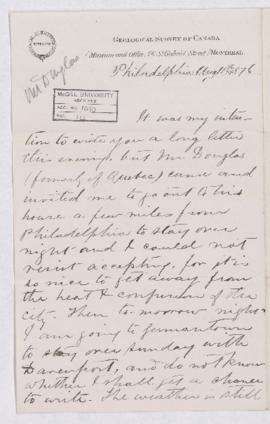 GEOLOGICAL SURVEY OF CANADA
Museum and Office, 76 St Gabriel Street, MONTREAL
Philadelphia Aug 1876
Mr Douglas
McGILL UNIVERSITY
ARCHIVES
It was my inten-
tion to write you a long letter
this evening, but Mr Douglas
(formerly of Quebec) came and
invited me to go out to his
house a few miles from
Philadelphia to stay over
night and I could not
resist accepting, for it is
so nice to get away from
the heat & confusion of the
city. Then to-morrow night
I am going to Germantown
to stay over Sunday with
Davenport, and do not know
whether I shall get a chance
to write. The weather is still